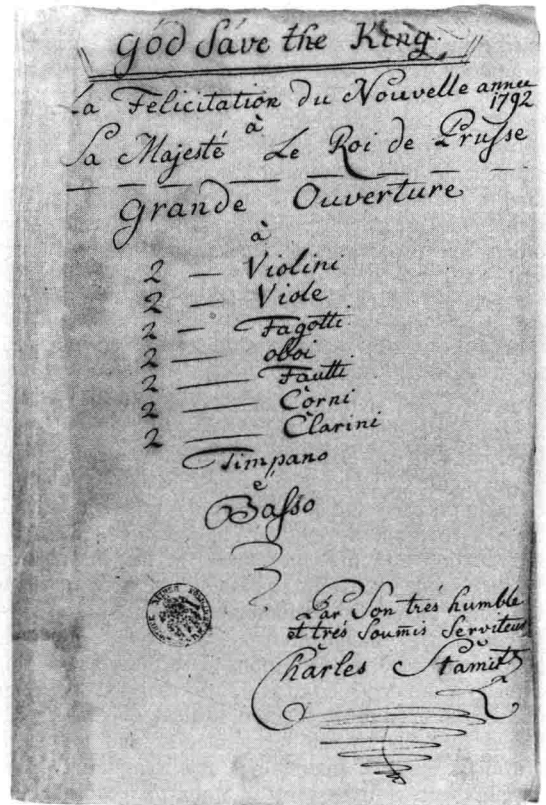 God Save the King.
La Felicitation du Nouvelle année
1792
à
Sa Majesté Le Roi de Prusse
Grande Ouverture
à
2 — Violini
2 — Viole
2 — Fagotti
2 — oboi
2 — Fautti
2 — Corni
2 — Clarini
Timpano
e
Basso
Par Son trés humble
et trés Soumis Serviteur
Charles Stamitz